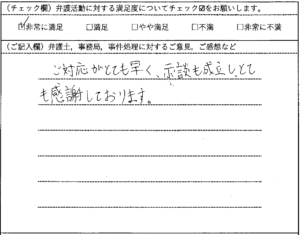 (チェック欄) 弁護活動に対する満足度についてチェック☑をお願いします。
☑非常に満足 □満足 □やや満足 □不満 □非常に不満
(ご記入欄) 弁護士,事務局,事件処理に対するご意見,ご感想など
ご対応がとても早く、示談も成立しとて
も感謝しております。